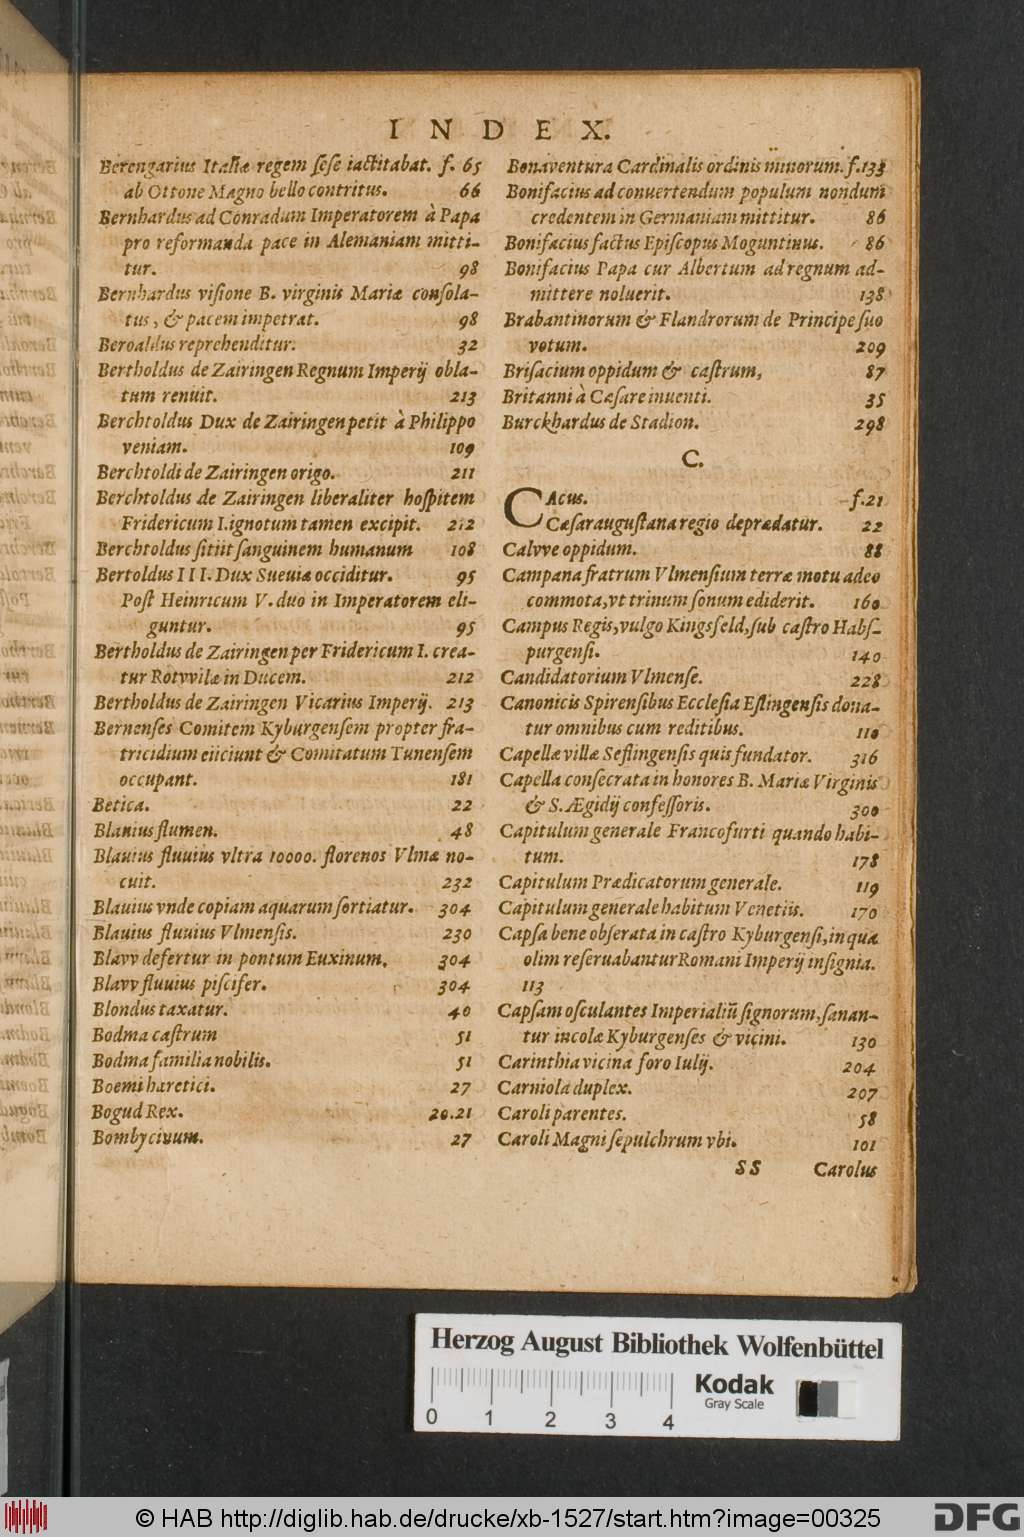 INDEX.
Berengarius Italiæ regem ſeſe iactitabat. f. 65
ab Ottone Magno bello contritus. 66
Bernhardus ad Conradum Imperatorem à Papa
pro reformanda pace in Alemaniam mitti-
tur. 98
Bernhardus viſione B. virginis Mariæ conſola-
tus, & pacem impetrat. 98
Beroaldus reprehenditur. 32
Bertholdus de Zairingen Regnum Imperij obla-
tum renuit. 213
Berchtoldus Dux de Zairingen petit à Philippo
veniam. 109
Berchtoldi de Zairingen origo. 211
Berchtoldus de Zairingen liberaliter hoſpitem
Fridericum I. ignotum tamen excipit. 212
Berchtoldus ſitiit ſanguinem humanum 108
Bertoldus III. Dux Sueuiæ occiditur. 95
Poſt Heinricum V. duo in Imperatorem eli-
guntur. 95
Bertholdus de Zairingen per Fridericum I. crea-
tur Rotvvilæ in Ducem. 212
Bertholdus de Zairingen Vicarius Imperij. 213
Bernenſes Comitem Kyburgenſem propter fra-
tricidium eijciunt & Comitatum Tunenſem
occupant. 181
Betica. 22
Blanius flumen. 48
Blauius fluuius vltra 10000. florenos Vlmæ no-
cuit. 232
Blauius vnde copiam aquarum ſortiatur. 304
Blauius fluuius Vlmenſis. 230
Blavv defertur in pontum Euxinum. 304
Blavv fluuius piſcifer. 304
Blondus taxatur. 40
Bodma caſtrum 51
Bodma familia nobilis. 51
Boemi hæretici. 27
Bogud Rex. 20.21
Bombycinum. 27
Bonaventura Cardinalis ordinis minorum. f. 133
Bonifacius ad conuertendum populum nondum
credentem in Germaniam mittitur. 86
Bonifacius factus Epiſcopus Moguntinus. 86
Bonifacius Papa cur Albertum ad regnum ad-
mittere noluerit. 138
Brabantinorum & Flandrorum de Principe ſuo
votum. 209
Briſacium oppidum & caſtrum, 87
Britanni à Cæſare inuenti. 35
Burckhardus de Stadion. 298
C.
CAcus. f. 21
Cæſarauguſtana regio deprædatur. 22
Calvve oppidum. 88
Campana fratrum Vlmenſium terræ motu adeo
commota, vt trinum ſonum ediderit. 160
Campus Regis, vulgo Kingsfeld, ſub caſtro Habſ-
purgenſi. 140
Candidatorium Vlmenſe. 228
Canonicis Spirenſibus Eccleſia Eſlingenſis dona-
tur omnibus cum reditibus. 110
Capellæ villæ Seflingenſis quis fundator. 316
Capella conſecrata in honores B. Mariæ Virginis
& S. Ægidij confeſſoris. 300
Capitulum generale Francofurti quando habi-
tum. 178
Capitulum Prædicatorum generale. 119
Capitulum generale habitum Venetiis. 170
Capſa bene obſerata in caſtro Kyburgenſi, in qua
olim reſeruabantur Romani Imperij inſignia.
113
Capſam oſculantes Imperialiū ſignorum, ſanan-
tur incolæ Kyburgenſes & vicini. 130
Carinthia vicina foro Iulij. 204
Carniola duplex. 207
Caroli parentes. 58
Caroli Magni ſepulchrum vbi. 101
SS Carolus
Herzog August Bibliothek Wolfenbüttel
0 1 2 3 4
Kodak
Gray Scale
© HAB http://diglib.hab.de/drucke/xb-1527/start.htm?image=00325
DFG